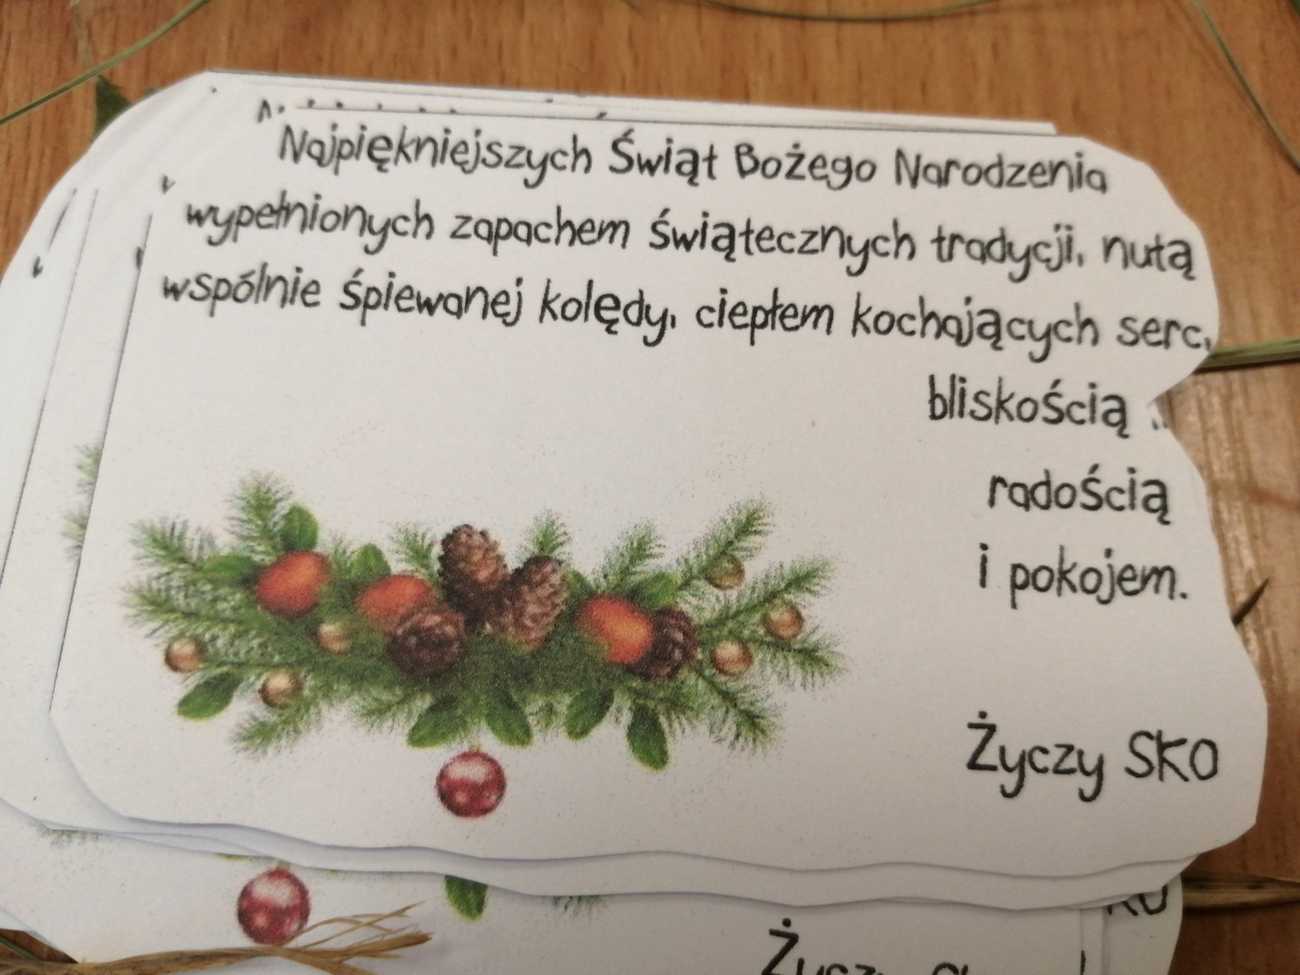 Najpiękniejszych Świąt Bożego Narodzenia
wypełnionych zapachem świątecznych tradycji, nutą
wspólnie śpiewanej kolędy, ciepłem kochających serc,
bliskością
radością
i pokojem.
Życzy SKO